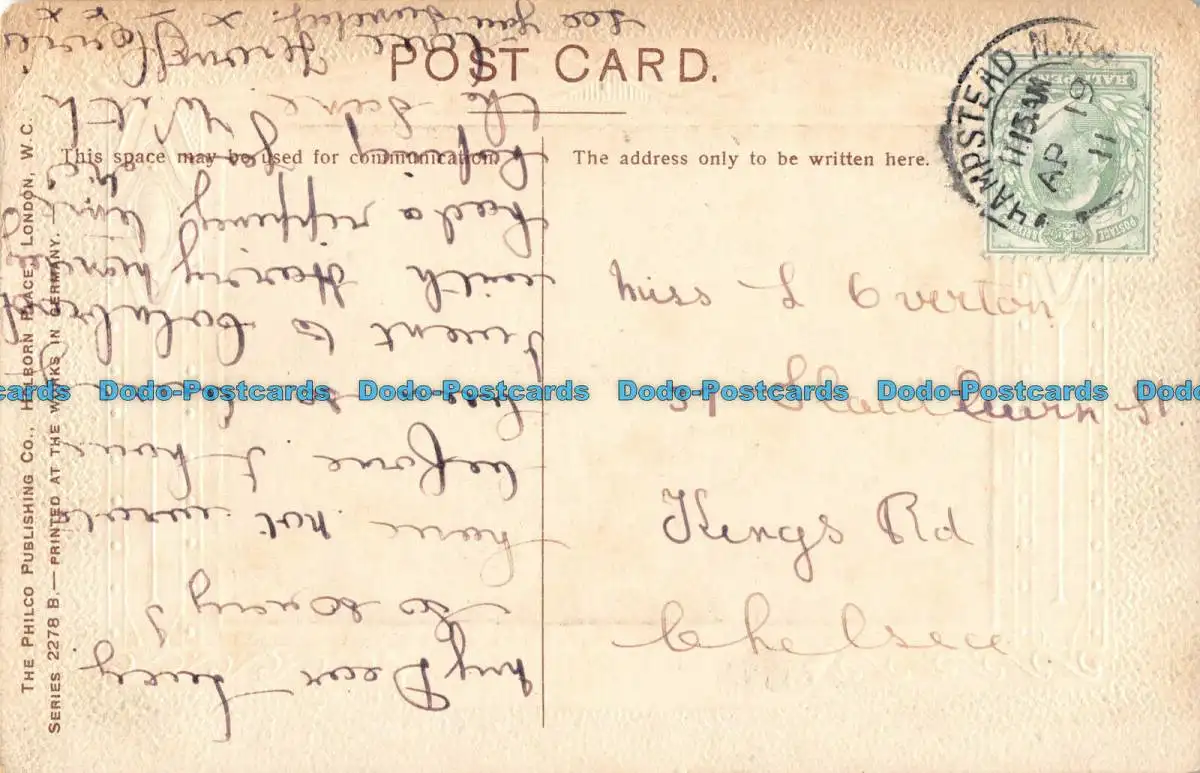 POST CARD.
This space may be used for communication.
The address only to be written here.
HAMPSTEAD N.W.
11 15 AM
AP 19
11
HALFPENNY
POSTAGE
Miss L Overton
Sladburn St.
Kings Rd
Chelsea
My Dear Lucy
So sorry I
have not wrote
before I have
been so
I went to
with
had a ripping time
hoping
the same With
love from
See you Sunday. x x x
Dodo-Postcards Dodo-Postcards Dodo-Postcards Dodo-Postcards
THE PHILCO PUBLISHING CO., HOLBORN PLACE, LONDON, W.C.
SERIES 2278 B. — PRINTED AT THE WORKS IN GERMANY.